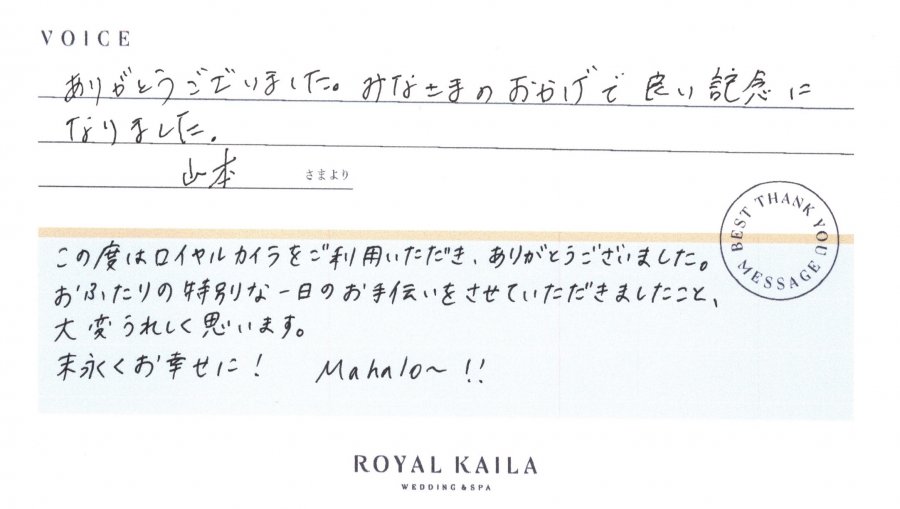 VOICE
ありがとうございました。みなさまのおかげで良い記念に
なりました。
山本 さまより
BEST THANK YOU MESSAGE
この度はロイヤルカイラをご利用いただき、ありがとうございました。
おふたりの特別な一日のお手伝いをさせていただきましたこと、
大変うれしく思います。
末永くお幸せに! Mahalo〜!!
ROYAL KAILA
WEDDING & SPA